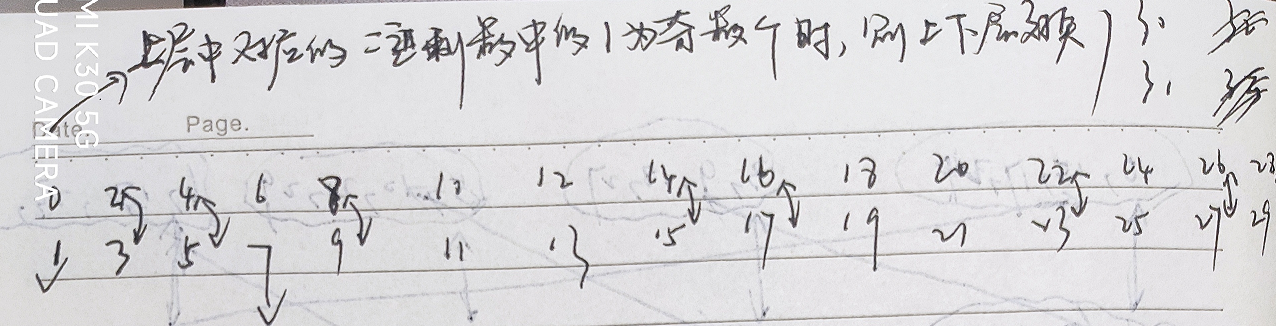 上层中对应的二进制数中的1为奇数个时，则上下层颠
Date. Page.
0 2 4 6 8 10 12 14 16 18 20 22 24 26 28
1 3 5 7 9 11 13 15 17 19 21 23 25 27 29
MI K30 5G
QUAD CAMERA